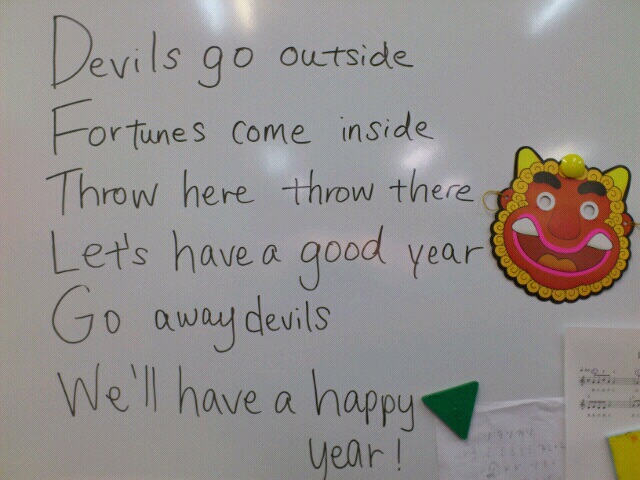 Devils go outside
Fortunes come inside
Throw here throw there
Let's have a good year
Go away devils
We'll have a happy
year!